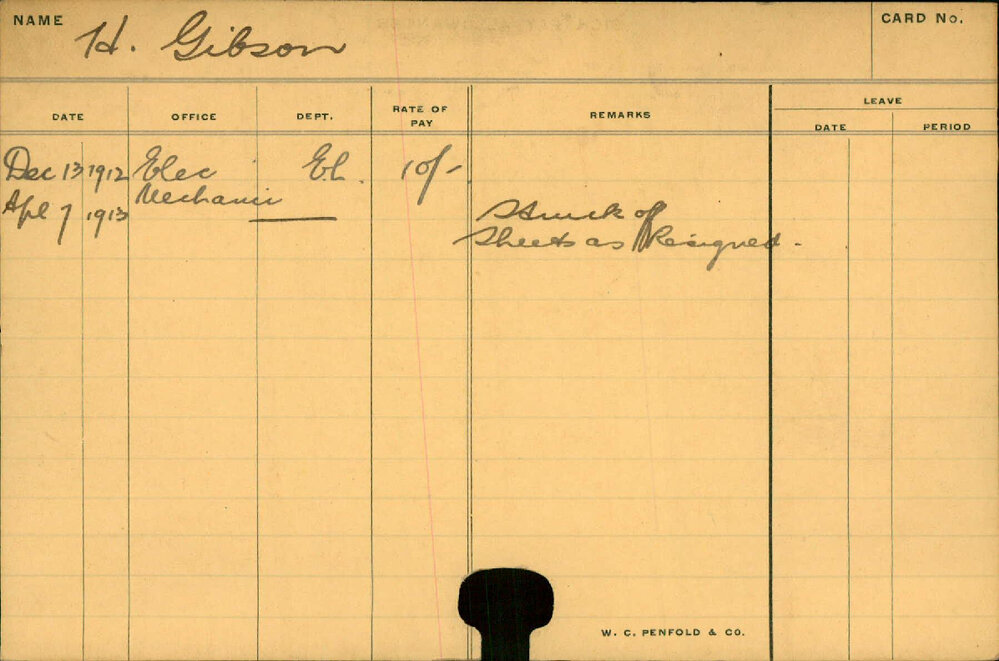 NAME H. Gibson CARD No.
DATE OFFICE DEPT. RATE OF PAY REMARKS LEAVE
DATE PERIOD
Dec 13 1912 Elec Mechanic EL. 10/-
Apl 7 1913 Struck of
Sheets as Resigned.
W. C. PENFOLD & CO.